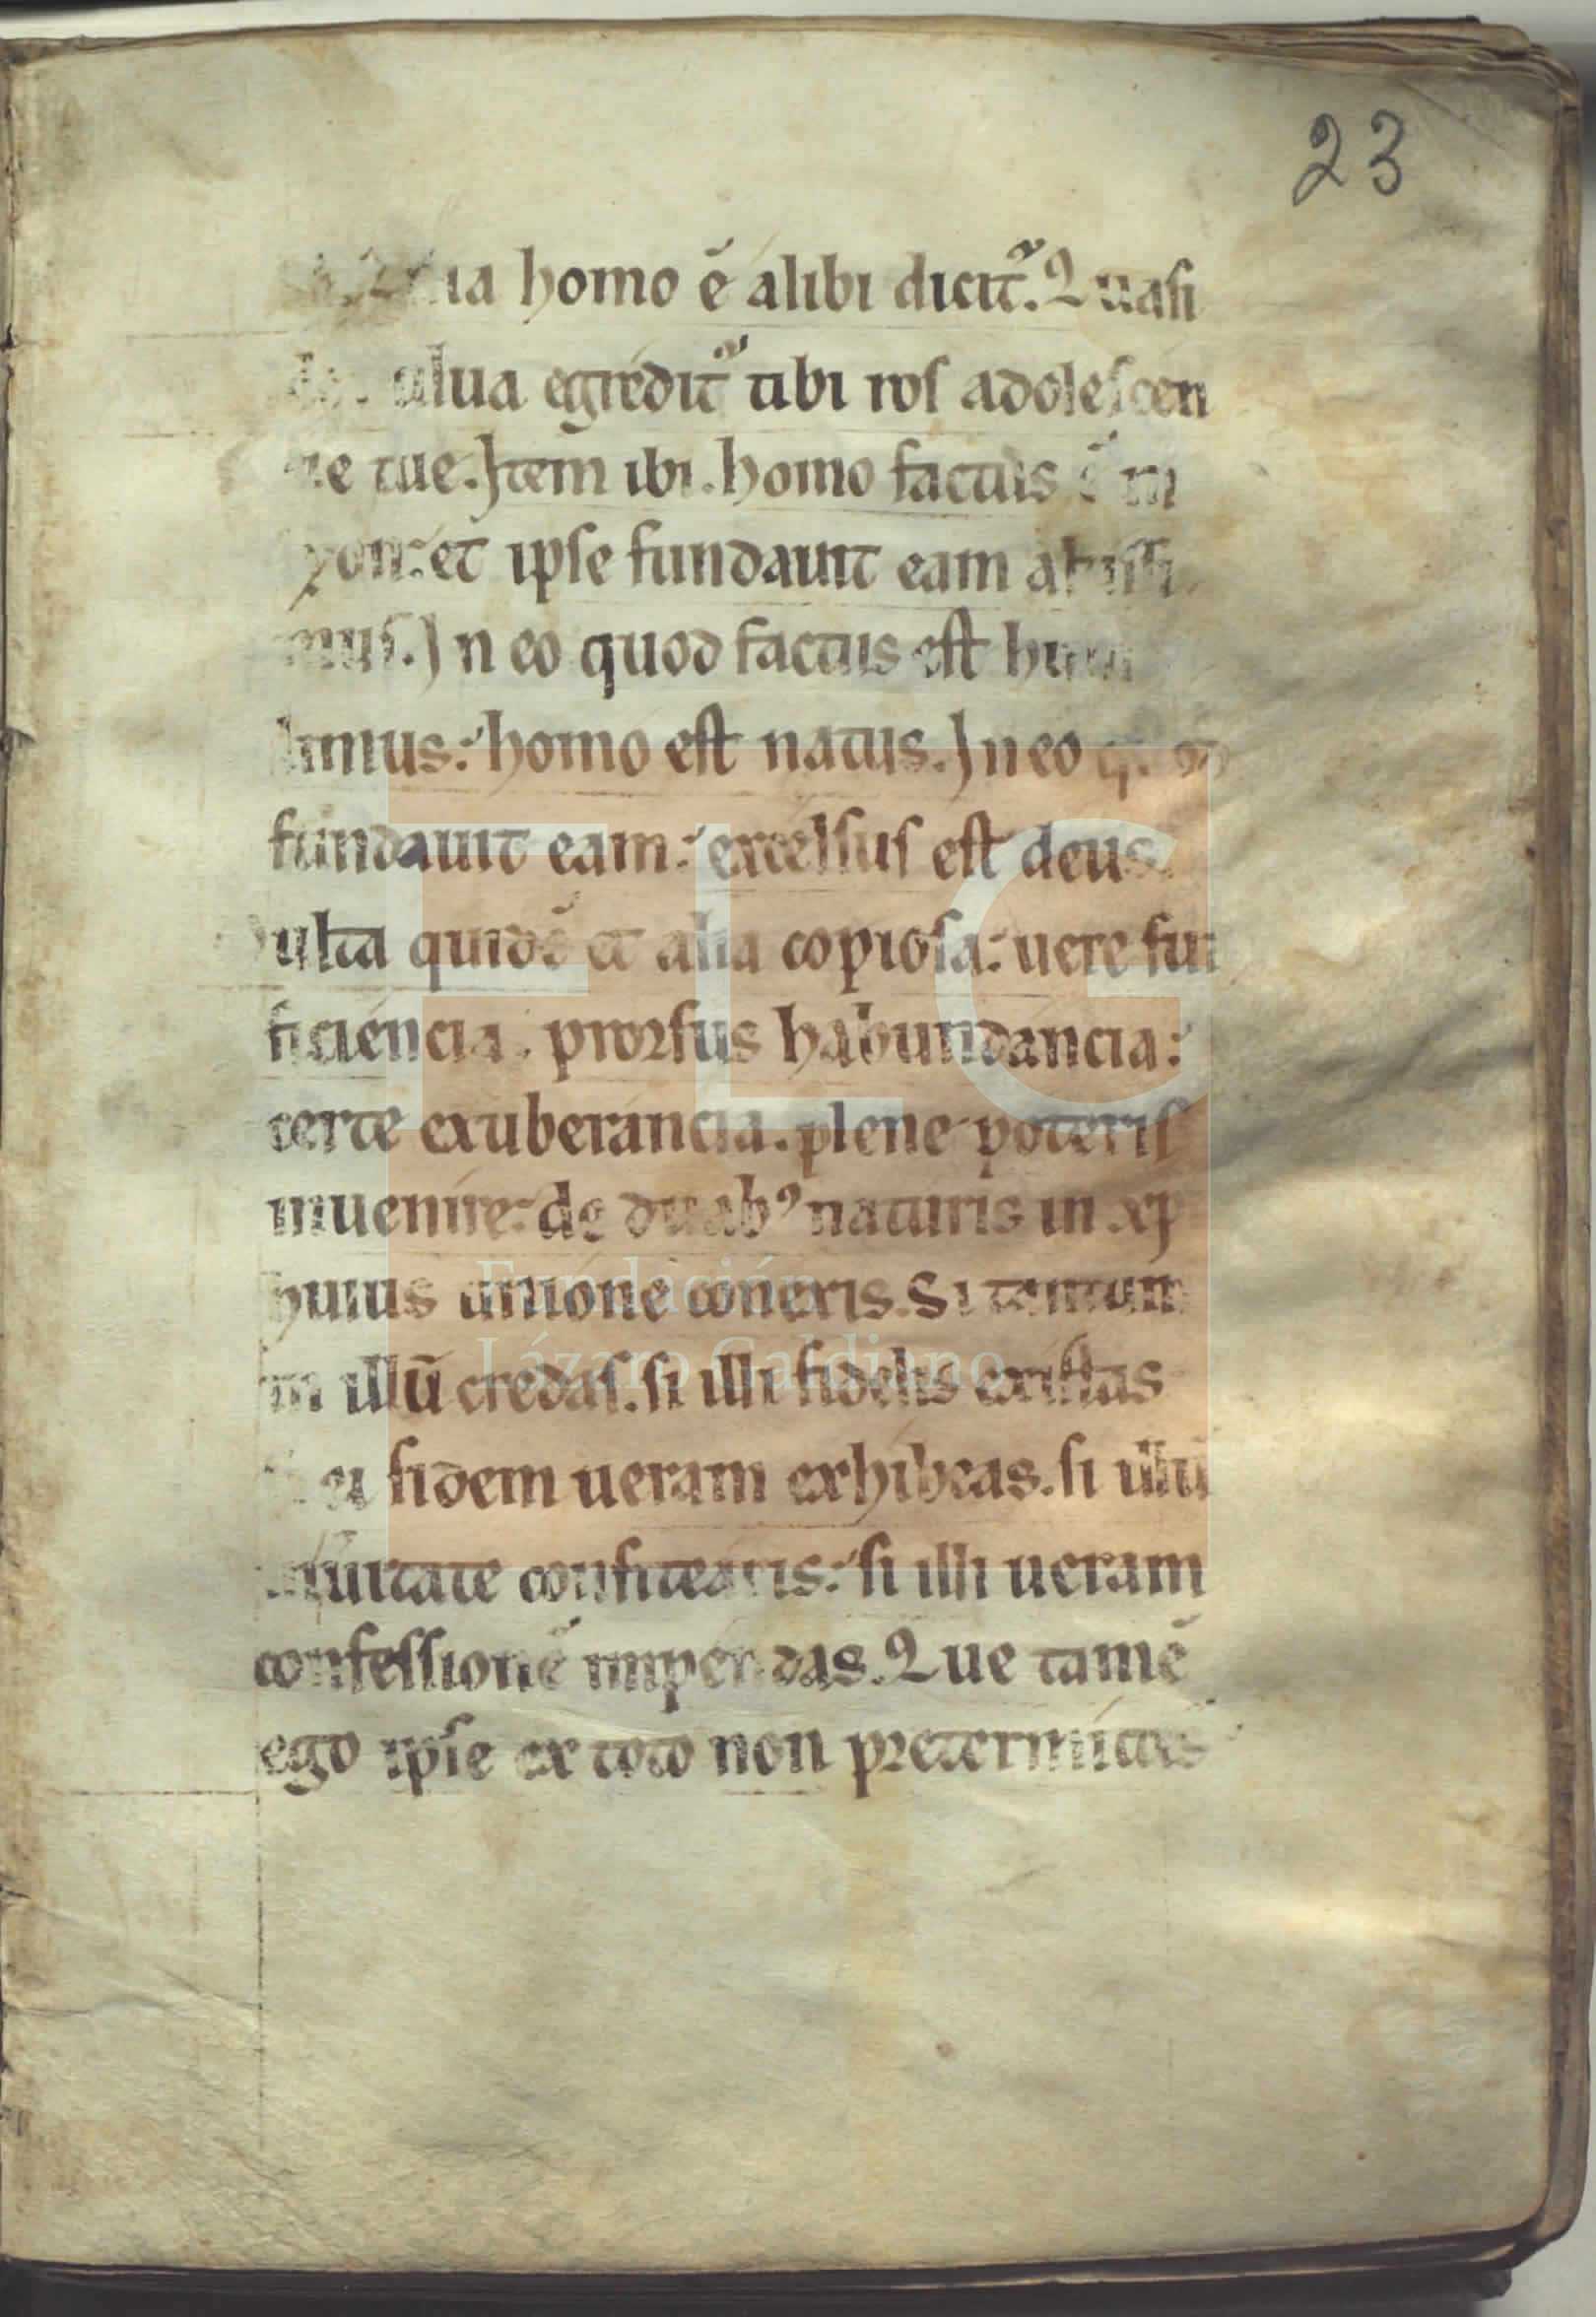 23
homo ē alibi dicit᷑. Quasi
egredit᷑ tibi ros adolescen
tue. Item ibi. homo factus ē in
et ipse fundauit eam
In eo quod factus est
homo est natus. In eo
fundauit eam: excelsus est deus.
ulta quidē et alia copiosa: uere suf
ficiencia. prorsus habundancia:
certe exuberancia. plene poteris
inuenire: de duabꝰ naturis in xp
huius unione conexis. Si tantum
in illū credas. si illi fidelis existas
ei fidem ueram exhibeas. si illū
confitearis: si illi ueram
confessionē impendas. Que tamē
ego ipse ex toto non pretermictes
FLG
Fundación
Lázaro Galdiano